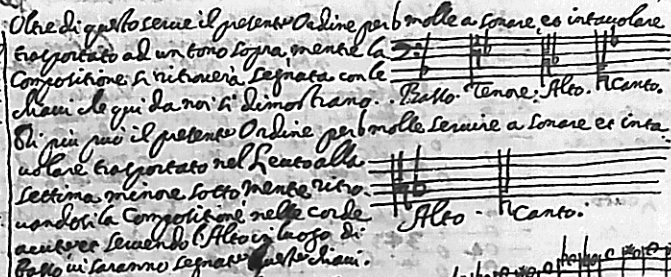 Oltre di questo serve il presente Ordine per b molle a sonare, et intavolare
trasportato ad un tono sopra, mentre la
Compositione si ritroverà segnata con le
chiavi che qui da noi si dimostrano. Basso. Tenore. Alto. Canto.
Di più può il presente Ordine per b molle servire a sonare et inta
volare trasportato nel Leuto alla
settima minore sotto mentre ritro
vandosi la Compositione nelle corde
acute et servendo l'Alto in luogo di
Basso vi saranno segnate queste chiavi.
Alto Canto.